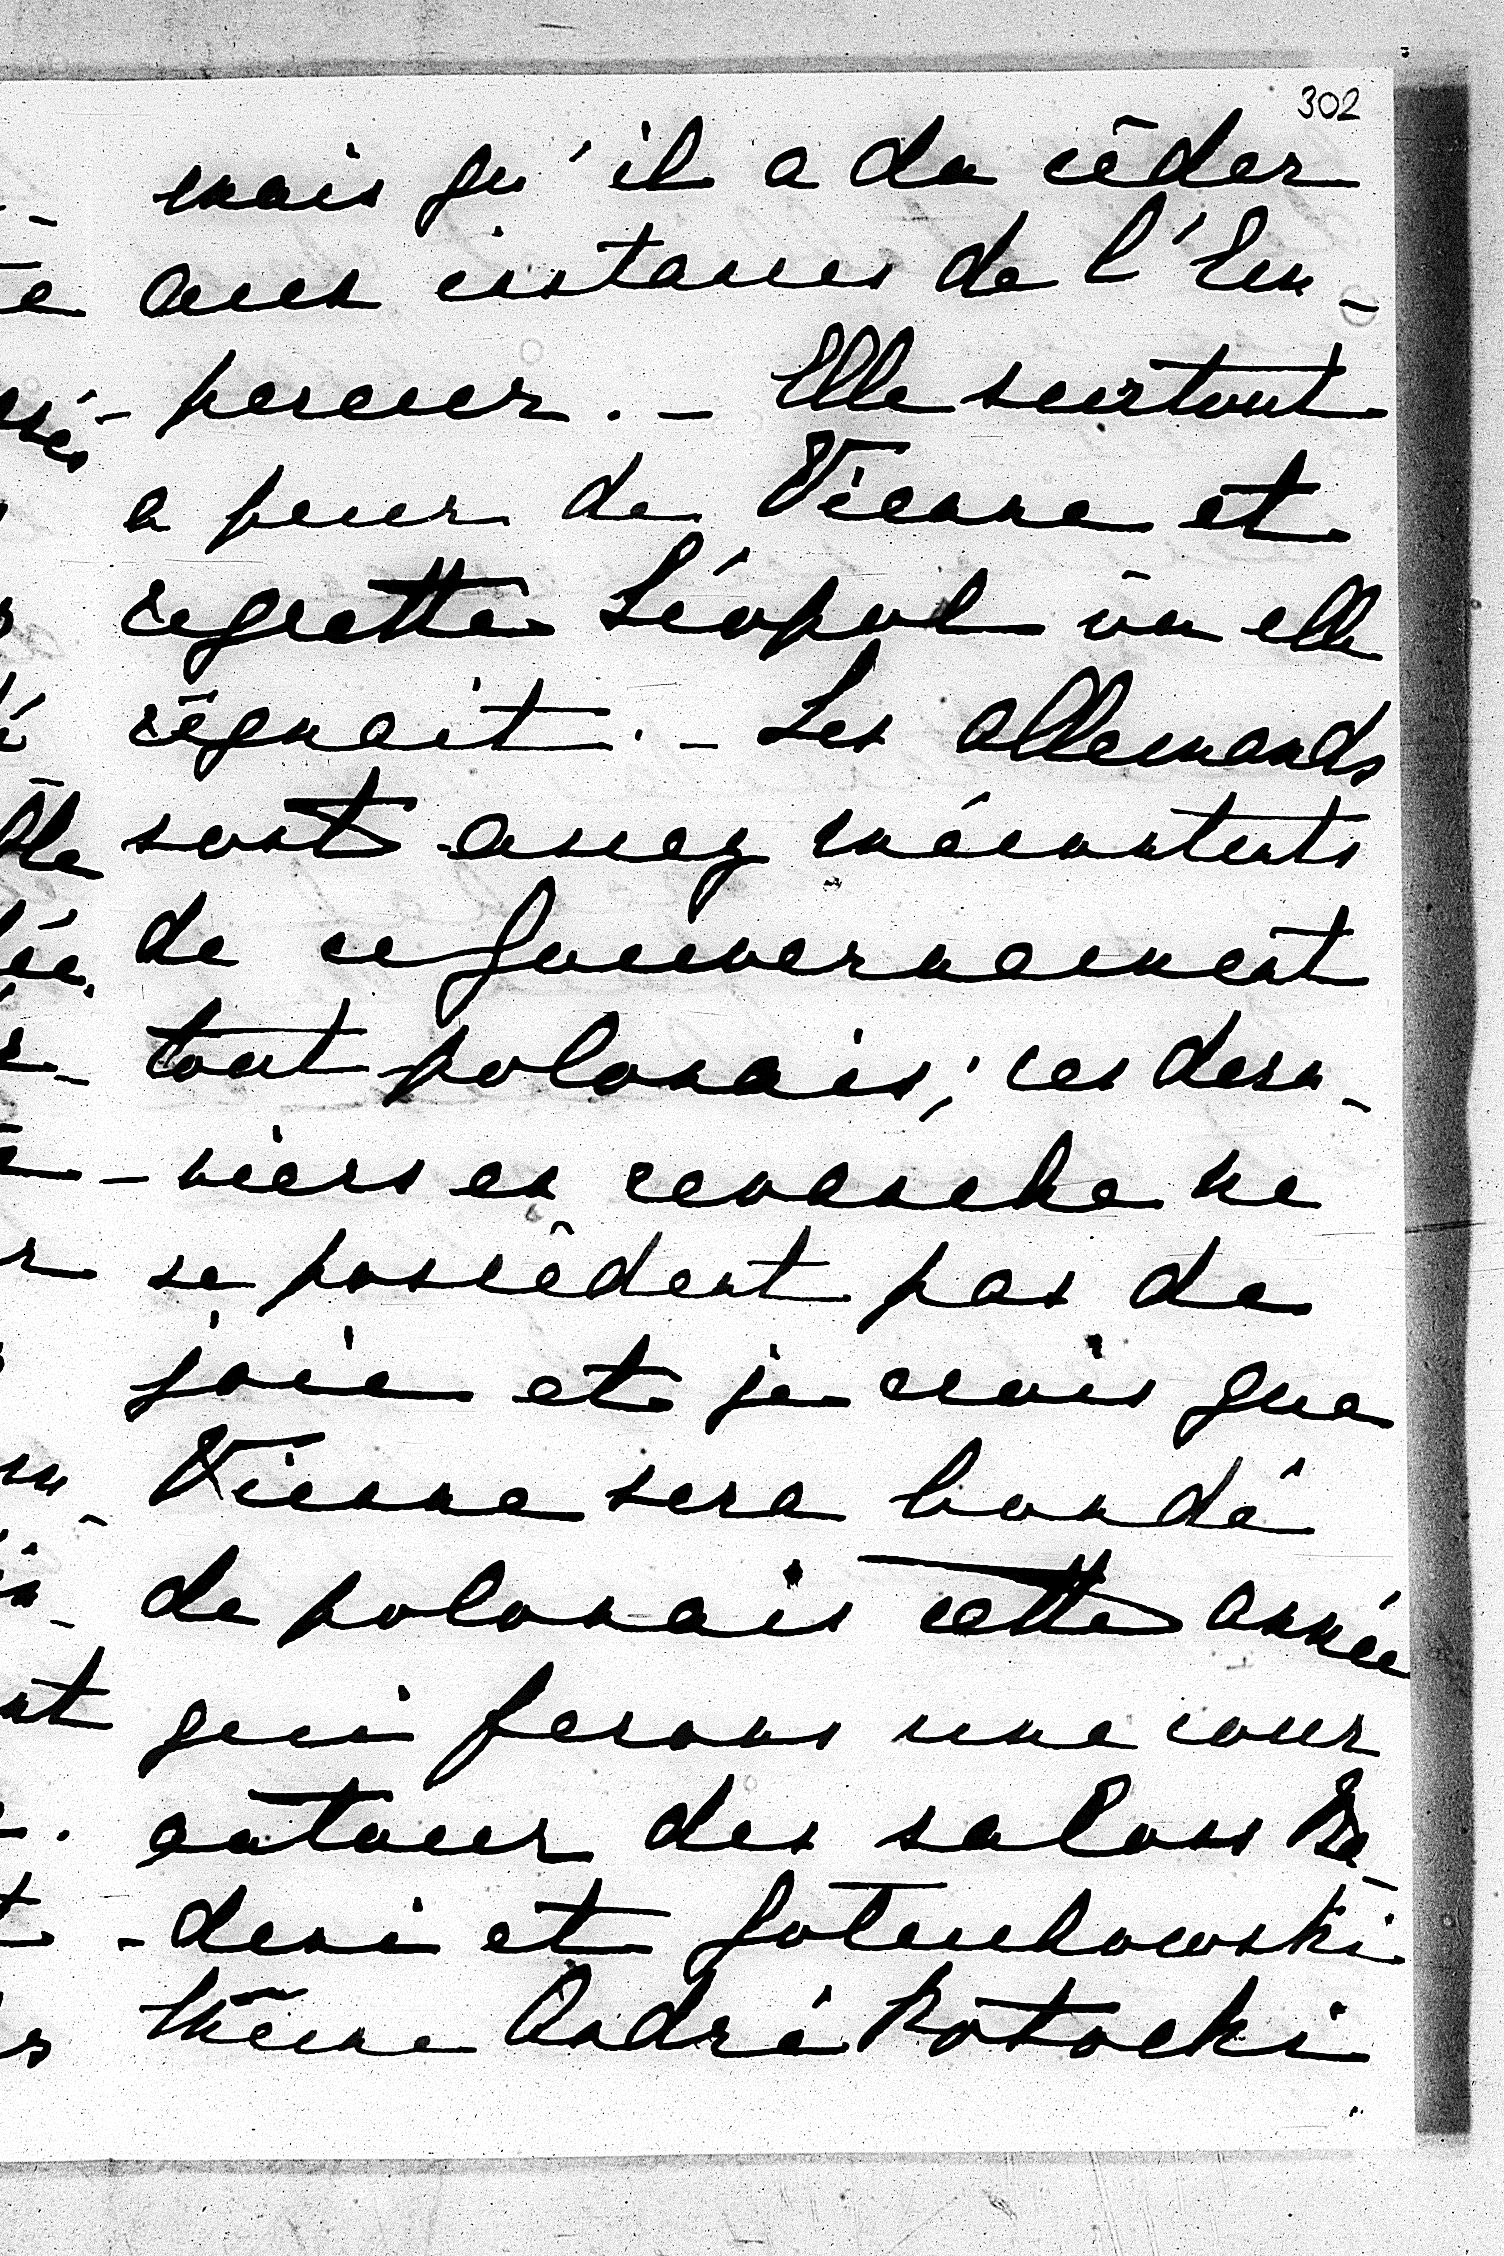 302
mais qu'il a du cêder
aux instances de l'Em-
pereur. - Elle surtout
a peur de Vienne et
regrette Léopol où elle
rêgnait. - Les allemands
sont assez mécontents
de ce gouvernement
tout polonais; ces dern-
-niers en revanche ne
se possêdent pas de
joie et je crois que
Vienne sera bondé
de polonais cette année
qui ferons une cour
autour des salons Ba-
-deni et Goluchowski
même André Potocki